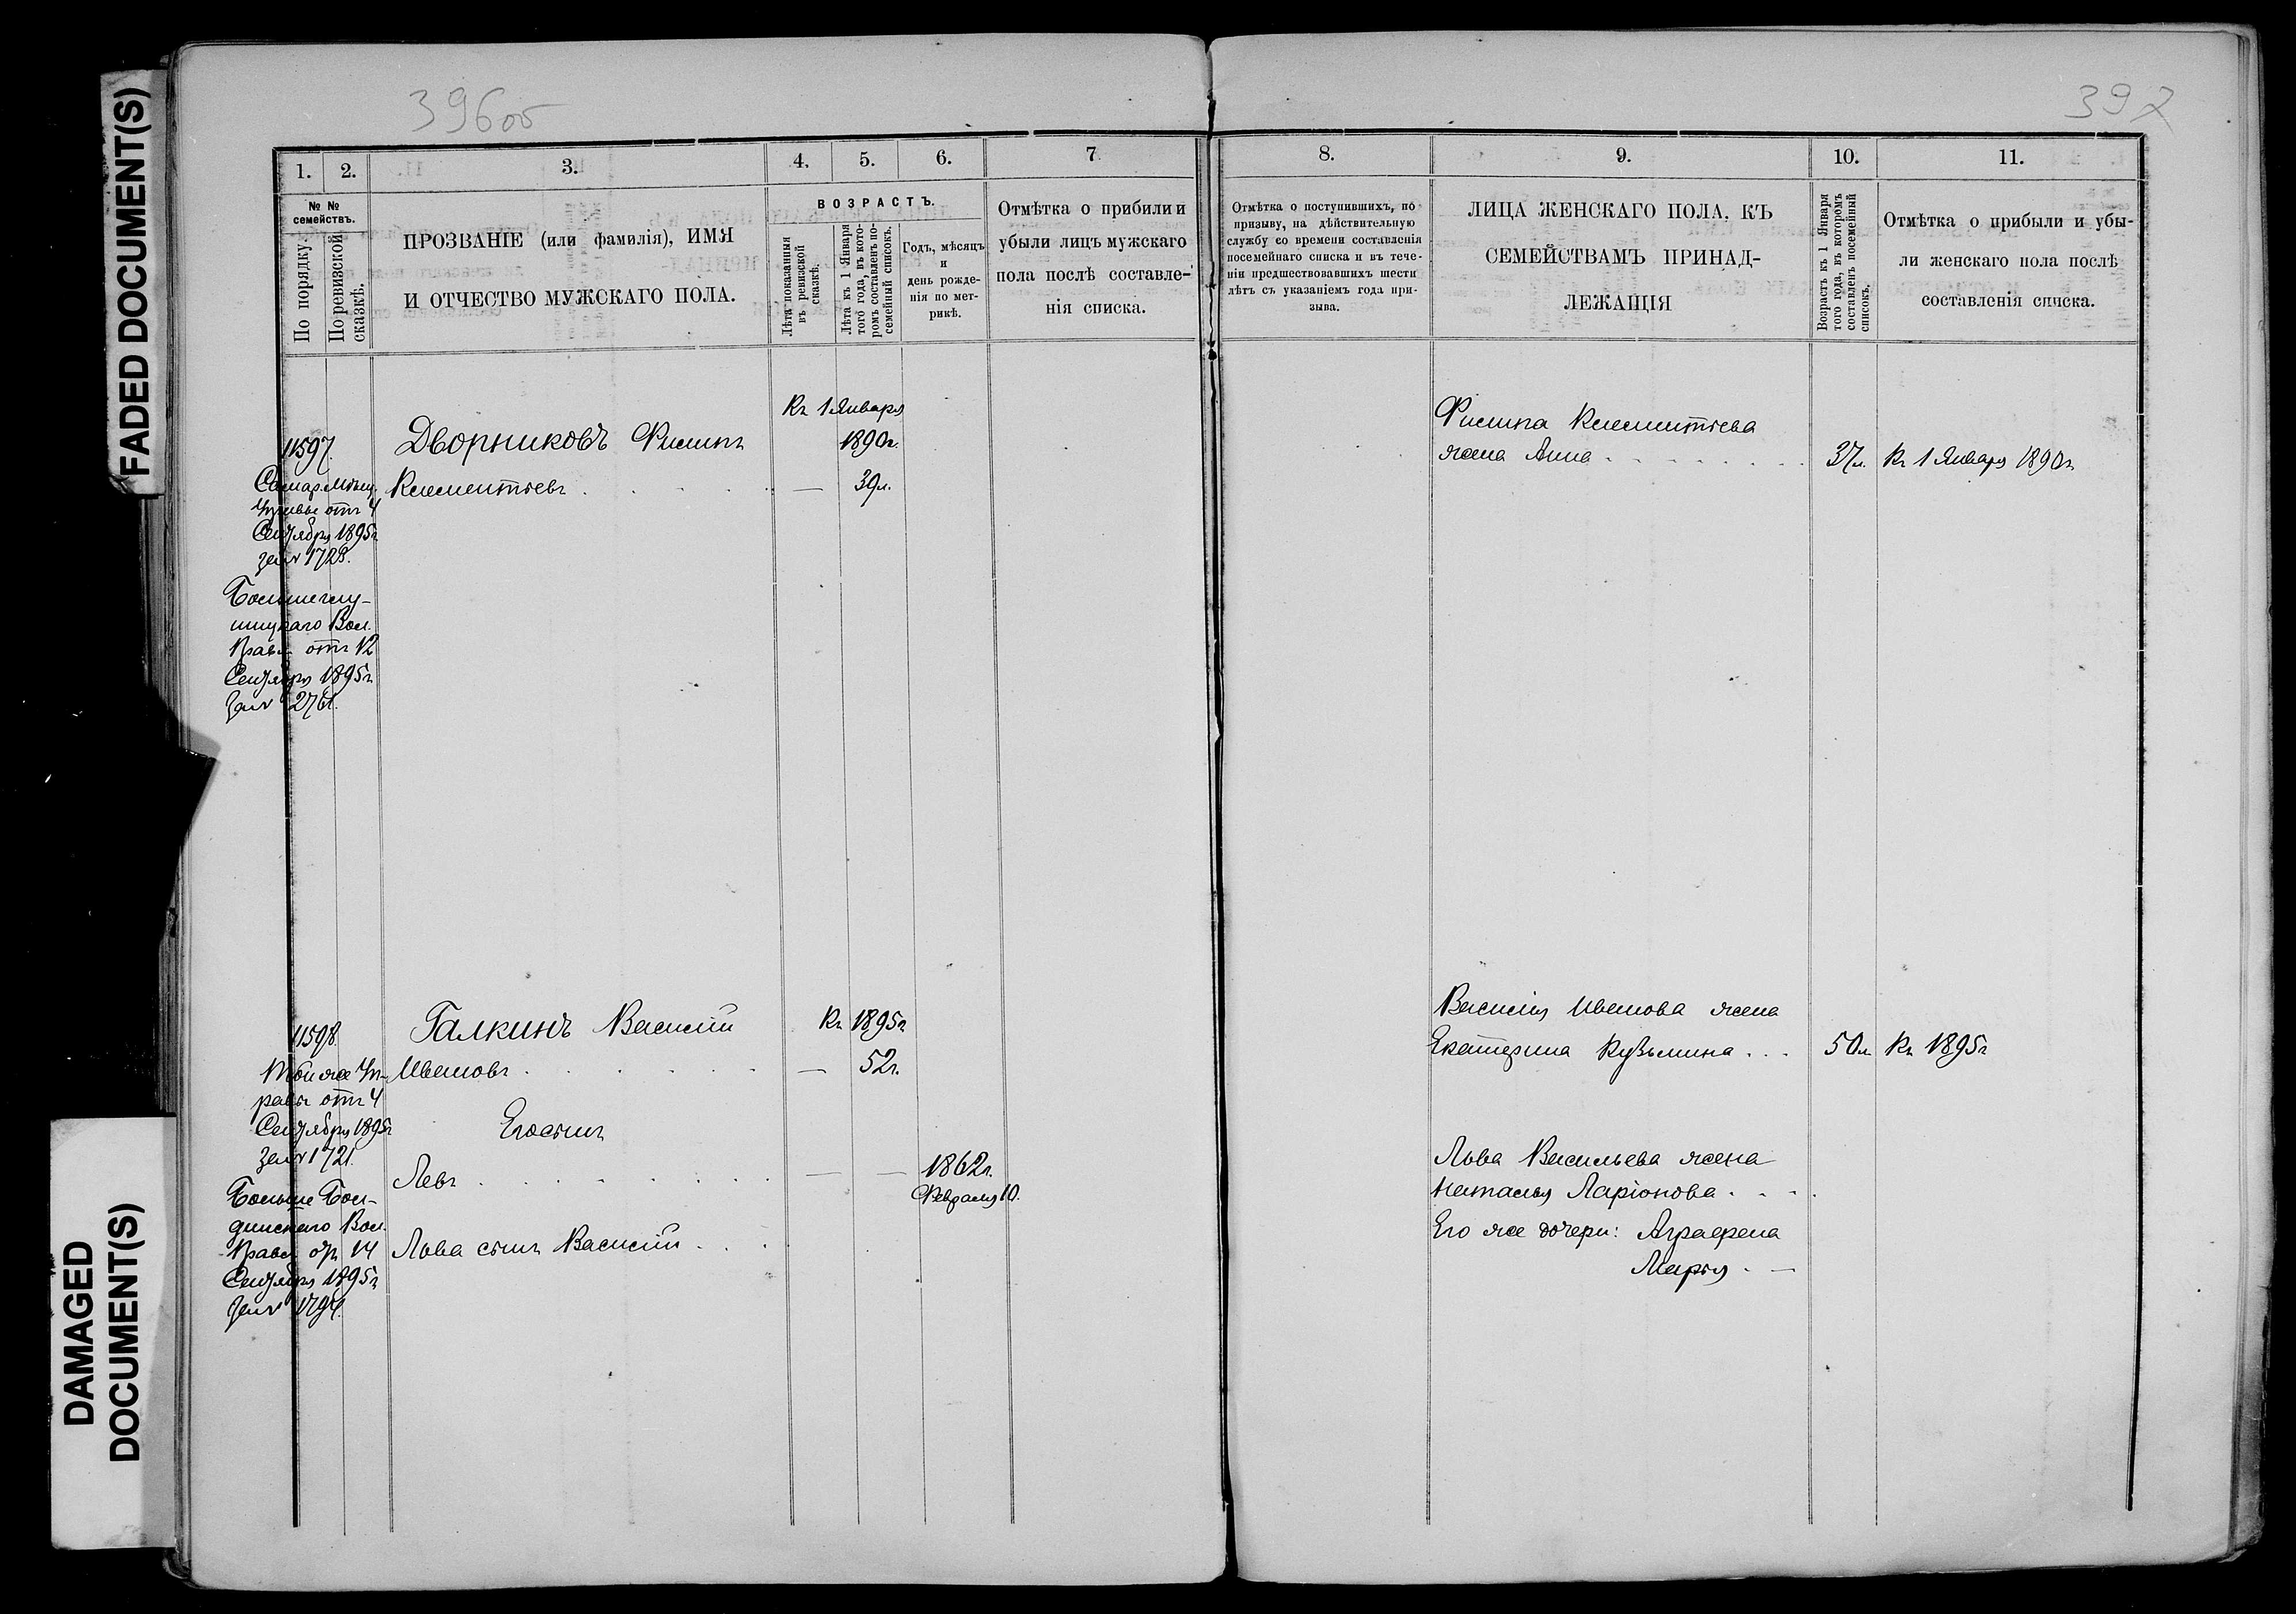 FADED DOCUMENT(S)
DAMAGED
DOCUMENT(S)
396об
1.
2.
3.
4.
5.
6.
7
№ №
семействъ.
По порядку.
По ревизской
сказкѣ.
ПРОЗВАНІЕ (или фамилія), ИМЯ
И ОТЧЕСТВО МУЖСКАГО ПОЛА.
ВОЗРАСТЪ.
Лѣта показанныя
въ ревизской
сказкѣ.
Лѣта къ 1 Января
того года, въ кото-
ромъ составленъ по-
семейный списокъ.
Годъ, мѣсяцъ
и
день рожде-
нія по мет-
рикѣ.
Отмѣтка о прибили и
убыли лицъ мужскаго
пола послѣ составле-
нія списка.
Къ 1 Января
11597.
Дворниковъ Филипъ
1890г.
Самар. Мѣщ.
Клементьевъ
—
39л.
Управы отъ 4
Сентября 1895г
за № 1728.
Большеглу-
шицкаго Вол.
Правл. отъ 12
Сентября 1895г.
за № 2761.
11598.
Галкинъ Василій
Къ 1895г
Той же Уп-
Ивановъ
—
52г.
равы отъ 4
Сентября 1895г
Его сынъ
за № 1721.
Левъ
—
—
1862г.
Февраля 10.
Больше Бол-
динскаго Вол.
Правл. отъ 14
Льва сынъ Василій
Сентября 1895г
за № 1794.
397
8.
9.
10.
11.
Отмѣтка о поступившихъ, по
призыву, на дѣйствительную
службу со времени составленія
посемейнаго списка и въ тече-
ніи предшествовавшихъ шести
лѣтъ съ указаніемъ года при-
зыва.
ЛИЦА ЖЕНСКАГО ПОЛА, КЪ
СЕМЕЙСТВАМЪ ПРИНАД-
ЛЕЖАЩІЯ
Возрастъ къ 1 Января
того года, въ которомъ
составленъ посемейный
списокъ.
Отмѣтка о прибыли и убы-
ли женскаго пола послѣ
составленія списка.
Филипа Клементьева
жена Анна
37л.
Къ 1 Января 1890г
Василія Иванова жена
Екатерина Кузьмина
50л
Къ 1895г
Льва Васильева жена
Наталья Ларіонова
Его же дочери: Аграфена
Марья